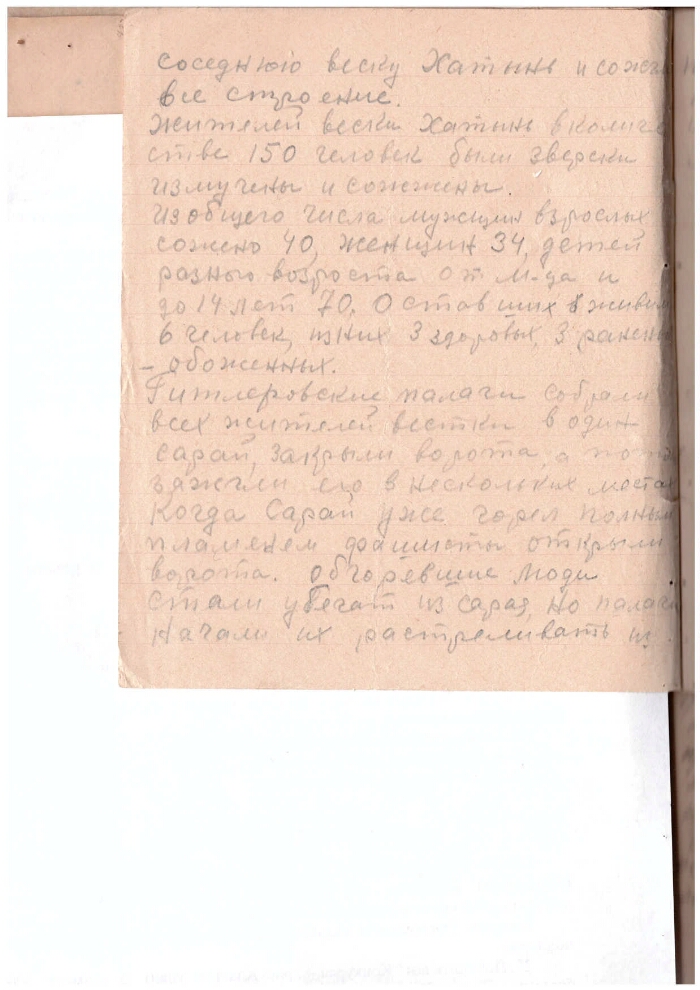 соседнюю веску Хатынь и сожгли
все строение.
Жителей вески Хатынь в количе
стве 150 человек были зверски
измучены и сожжены.
Из общего числа мужщин взрослых
сожено 40, женщин 34, детей
разного возроста от м-ца и
до 14 лет 70. Оставших в живых
6 человек, из них 3 здоровых, 3 ранены
- обоженных.
Гитлеровские палачи собрали
всех жителей вестки в один
сарай, закрыли ворота, а потом
зажгли его в нескольких местах
Когда сарай уже горел полным
пламенем фашисты открыли
ворота. Обгоревшие люди
стали убегат из сарая, но палачи
начали их растреливать из